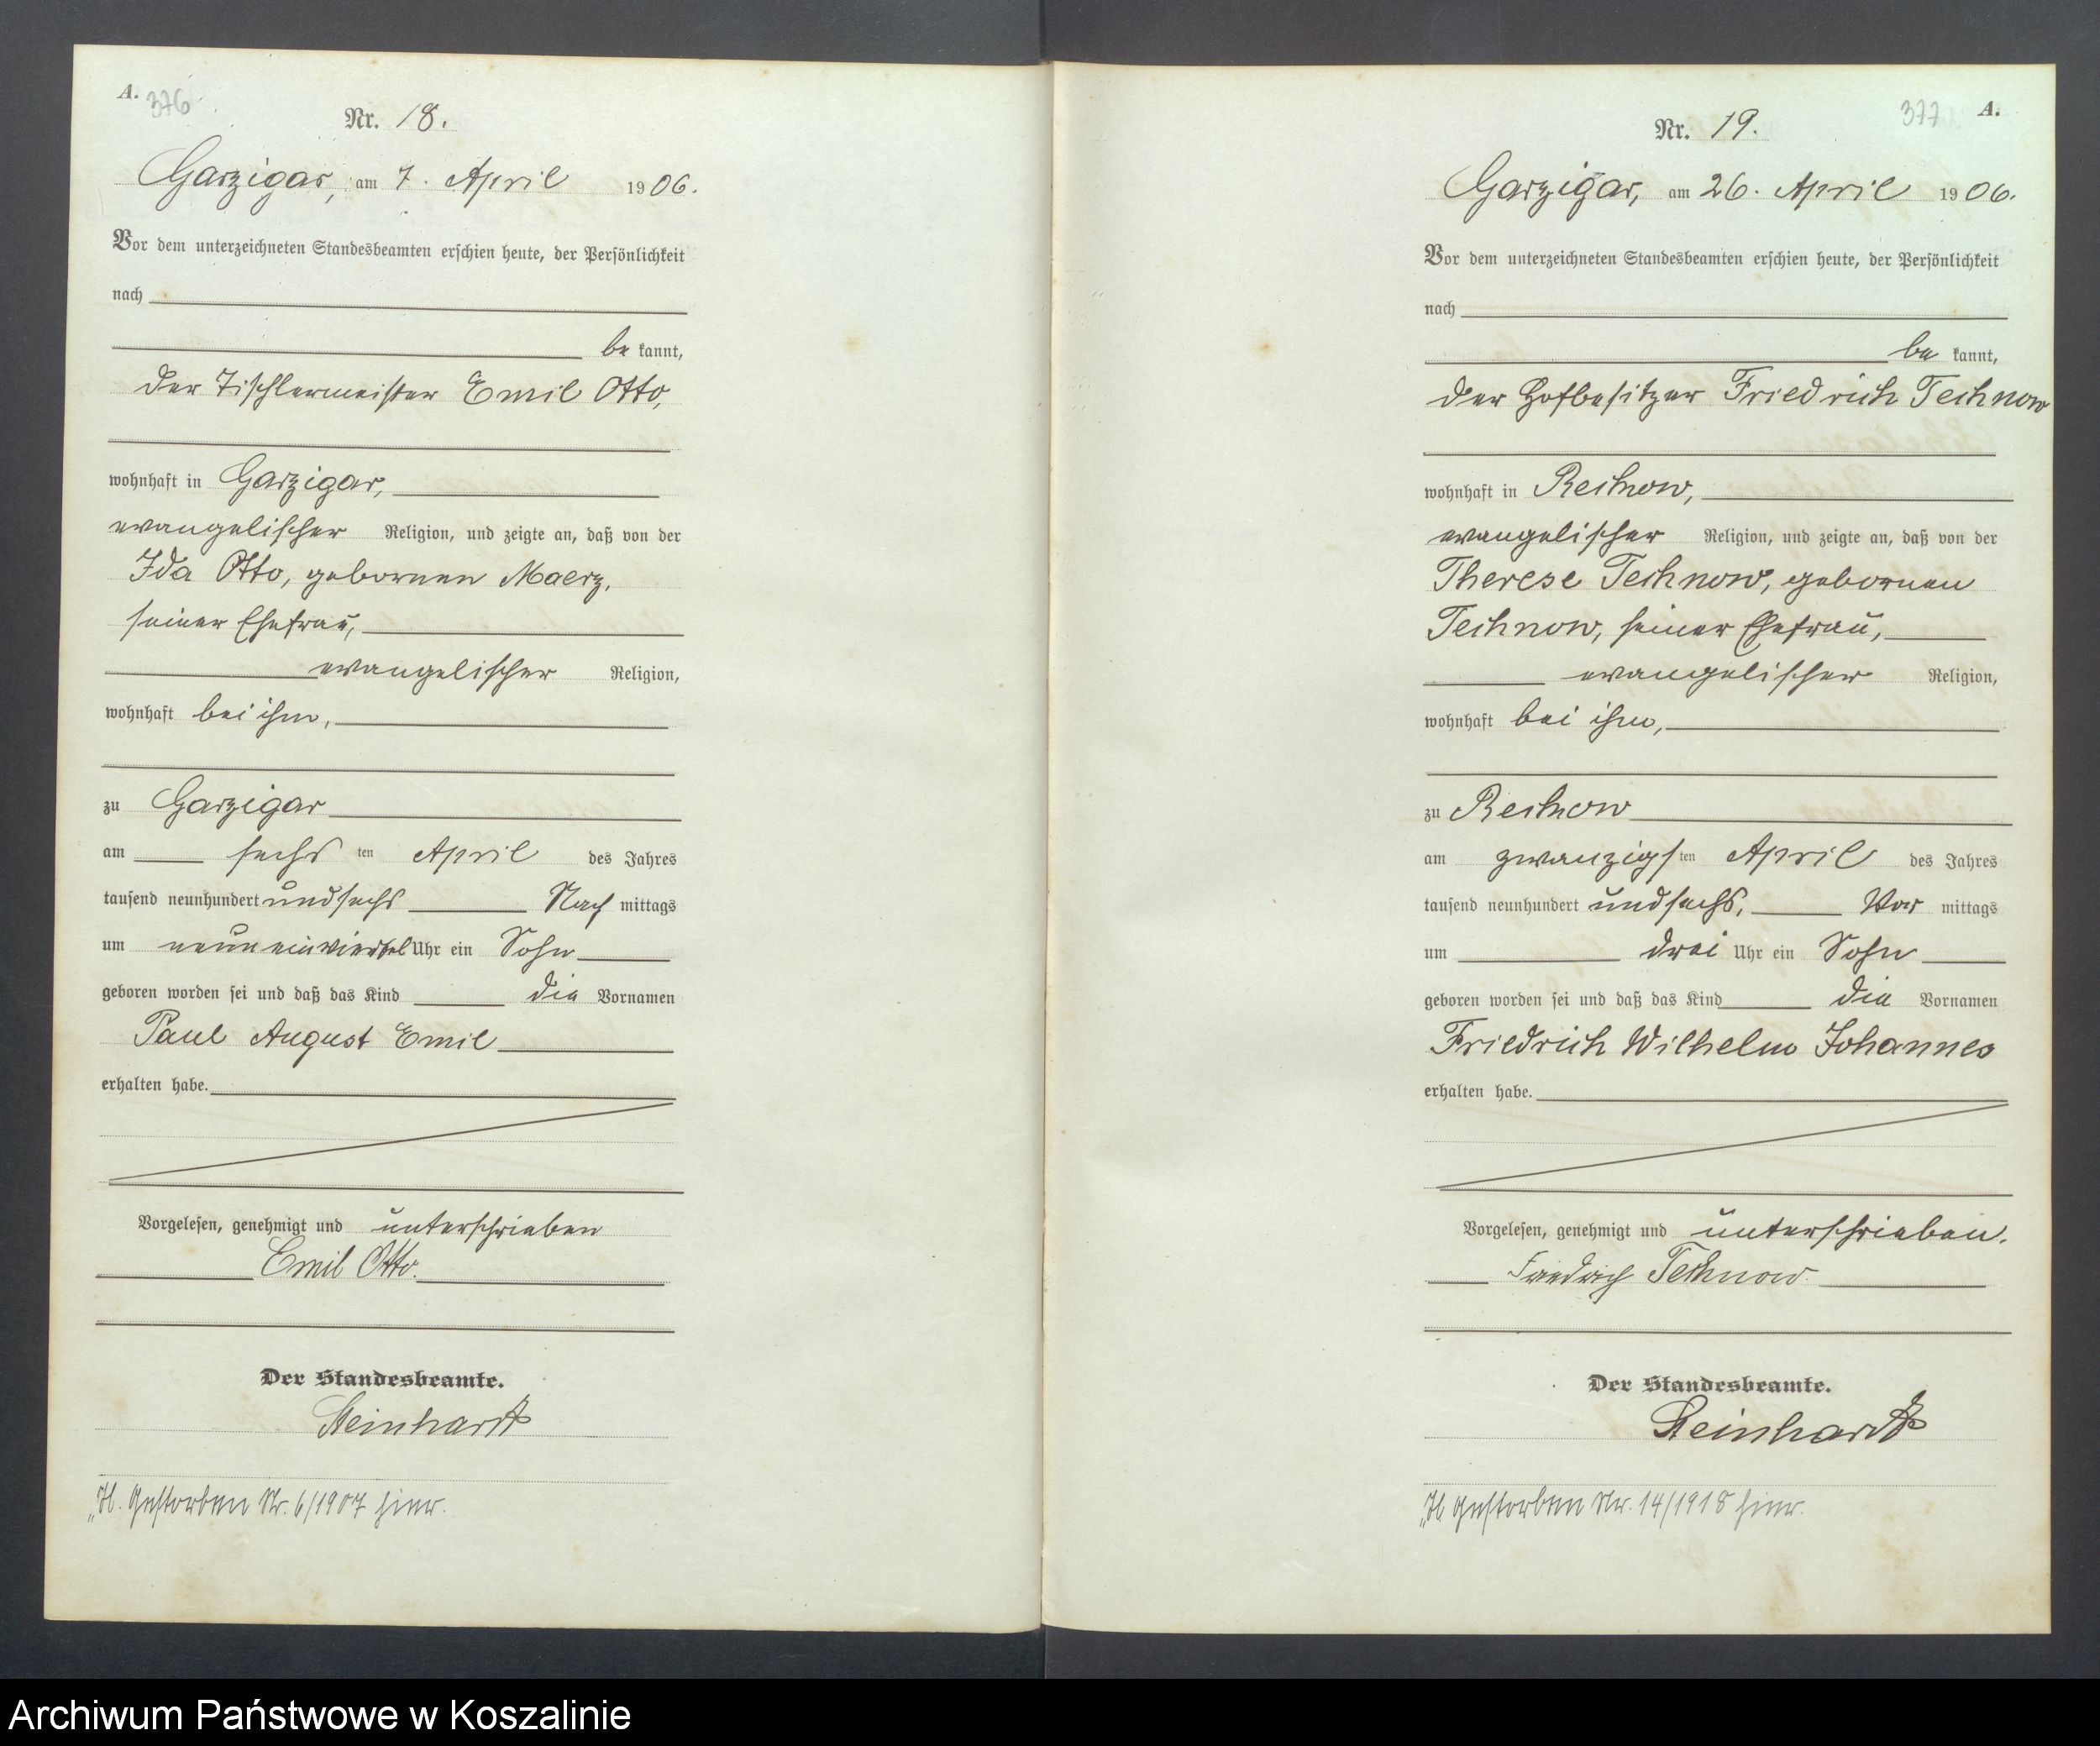 A.
376
Nr. 18.
Garzigar, am 7. April 1906.
Vor dem unterzeichneten Standesbeamten erschien heute, der Persönlichkeit
nach
be kannt,
der Tischlermeister Emil Otto,
wohnhaft in Garzigar,
evangelischer Religion, und zeigte an, daß von der
Ida Otto, gebornen Maerz,
seiner Ehefrau,
evangelischer Religion,
wohnhaft bei ihm,
zu Garzigar
am sechs ten April des Jahres
tausend neunhundert und sechs Nach mittags
um neun einviertel Uhr ein Sohn
geboren worden sei und daß das Kind die Vornamen
Paul August Emil
erhalten habe.
Vorgelesen, genehmigt und unterschrieben
Emil Otto.
Der Standesbeamte.
Steinhardt
Gestorben Nr. 6/1907 hier.
377 A.
Nr. 19.
Garzigar, am 26. April 1906.
Vor dem unterzeichneten Standesbeamten erschien heute, der Persönlichkeit
nach
be kannt,
der Hofbesitzer Friedrich Technow
wohnhaft in Reckow,
evangelischer Religion, und zeigte an, daß von der
Therese Technow, gebornen
Technow, seiner Ehefrau,
evangelischer Religion,
wohnhaft bei ihm,
zu Reckow
am zwanzigs ten April des Jahres
tausend neunhundert und sechs, Vor mittags
um drei Uhr ein Sohn
geboren worden sei und daß das Kind die Vornamen
Friedrich Wilhelm Johannes
erhalten habe.
Vorgelesen, genehmigt und unterschrieben.
Friedrich Technow
Der Standesbeamte.
Steinhardt
Gestorben Nr. 14/1918 hier.
Archiwum Państwowe w Koszalinie